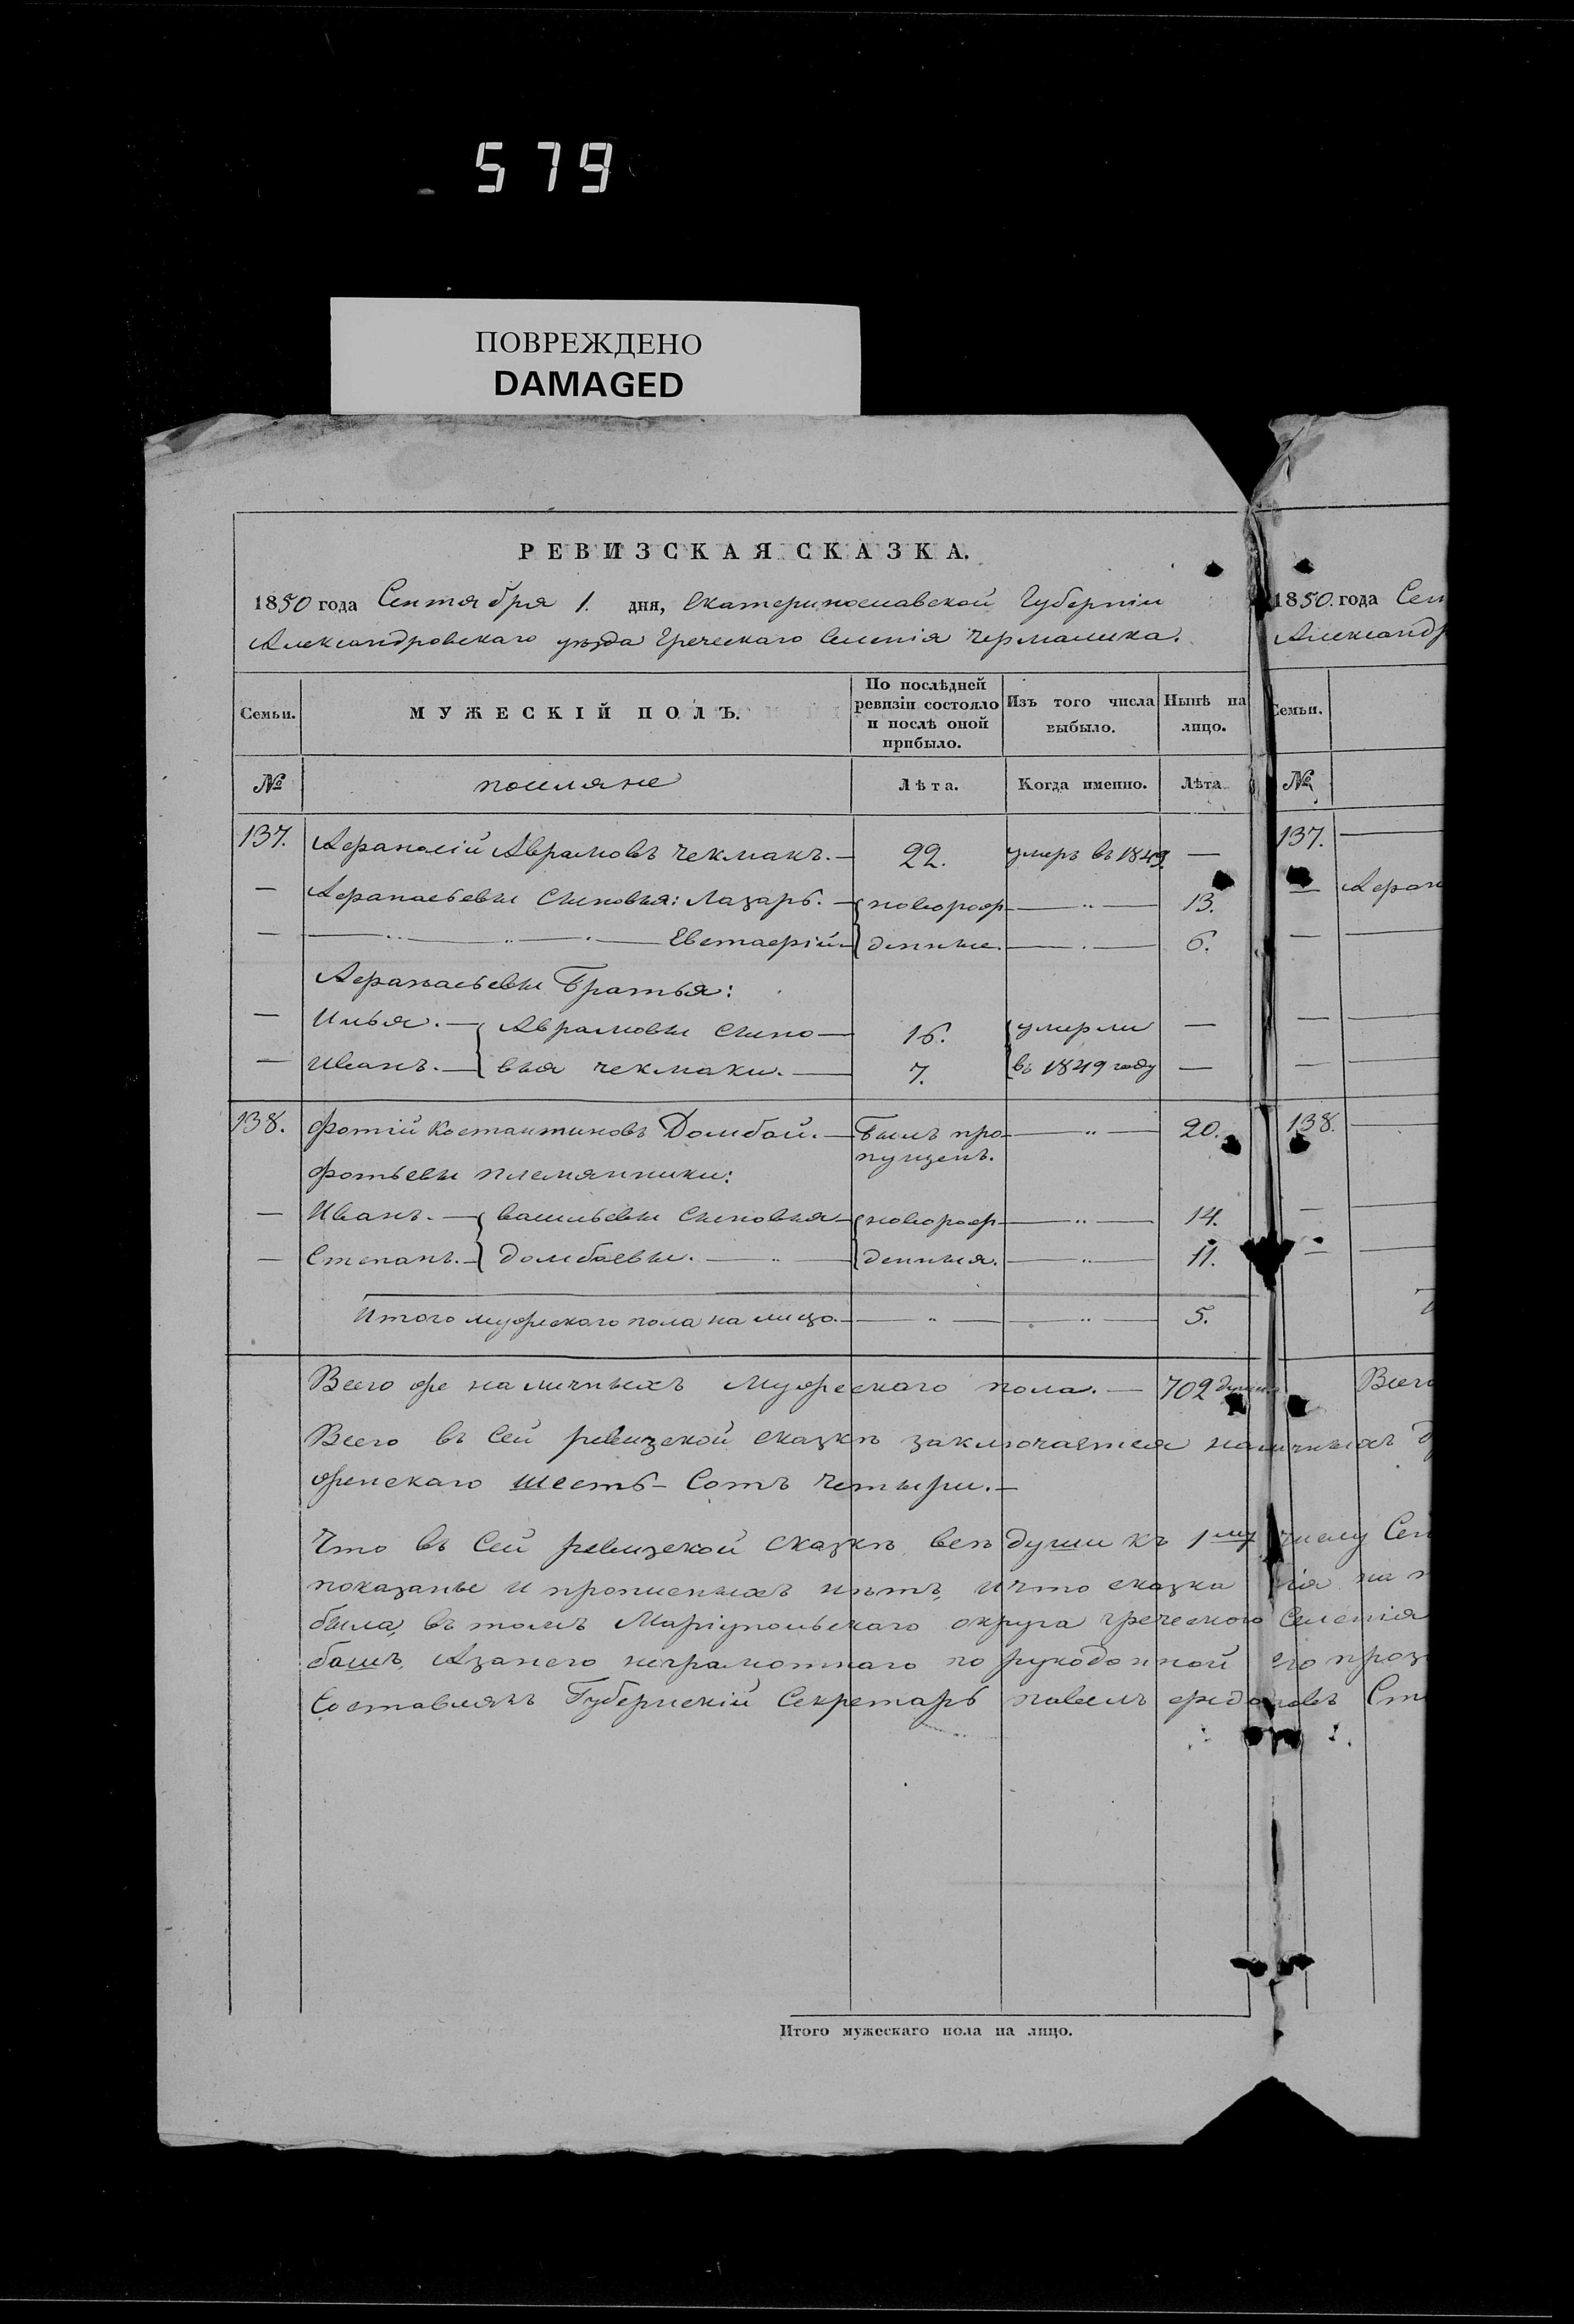 579
ПОВРЕЖДЕНО
DAMAGED
РЕВИЗСКАЯ СКАЗКА.
1850 года Сентября 1. дня, Екатеринославской Губерніи
Александровскаго уѣзда Греческаго Селенія Чермалика.
Семьи.
МУЖЕСКІЙ ПОЛЪ.
По послѣдней ревизіи состояло и послѣ оной прибыло.
Изъ того числа выбыло.
Нынѣ на лицо.
№ поселяне Лѣта. Когда именно. Лѣта
137. Афанасій Аврамовъ Чекмакъ. — 22. умеръ въ 1849. —
— Афанасьевы Сыновья: Лазарь. — новорож — „ — 13.
— — „ — „ — „ — Евстафій — денные. — „ — 6.
Афанасьевы Братья:
— Илья. — Аврамовы Сыно — 16. умерли —
— Иванъ. — вья Чекмаки. — 7. въ 1849 году —
138. Фотій Костантиновъ Домбай. — Былъ про — „ — 20.
пущенъ.
Фотьевы племянники:
— Иванъ. — Васильевы Сыновья — новорож — „ — 14.
— Степанъ. — Домбаевы. — „ — денныя. — „ — 11.
Итого мужескаго пола на лицо. — „ — „ — 5.
Всего же наличныхъ Мужескаго пола. — 702 души
Всего въ Сей ревизской сказкѣ заключается наличныхъ
женскаго шесть-Сотъ Четыри. —
Что въ Сей ревизской сказкѣ всѣ души къ 1му числу Сен
показаны и прописныхъ нѣтъ, и что сказка сія на
была, въ томъ Маріупольскаго округа греческого Селенія
башъ, А за него неграмотнаго по рукоданной его
Составлялъ Губернскій Секретарь Павелъ
Итого мужескаго пола на лицо.
1850. года Сен
Александр
Семьи.
№
137. —
— Афан
138. —
Всего